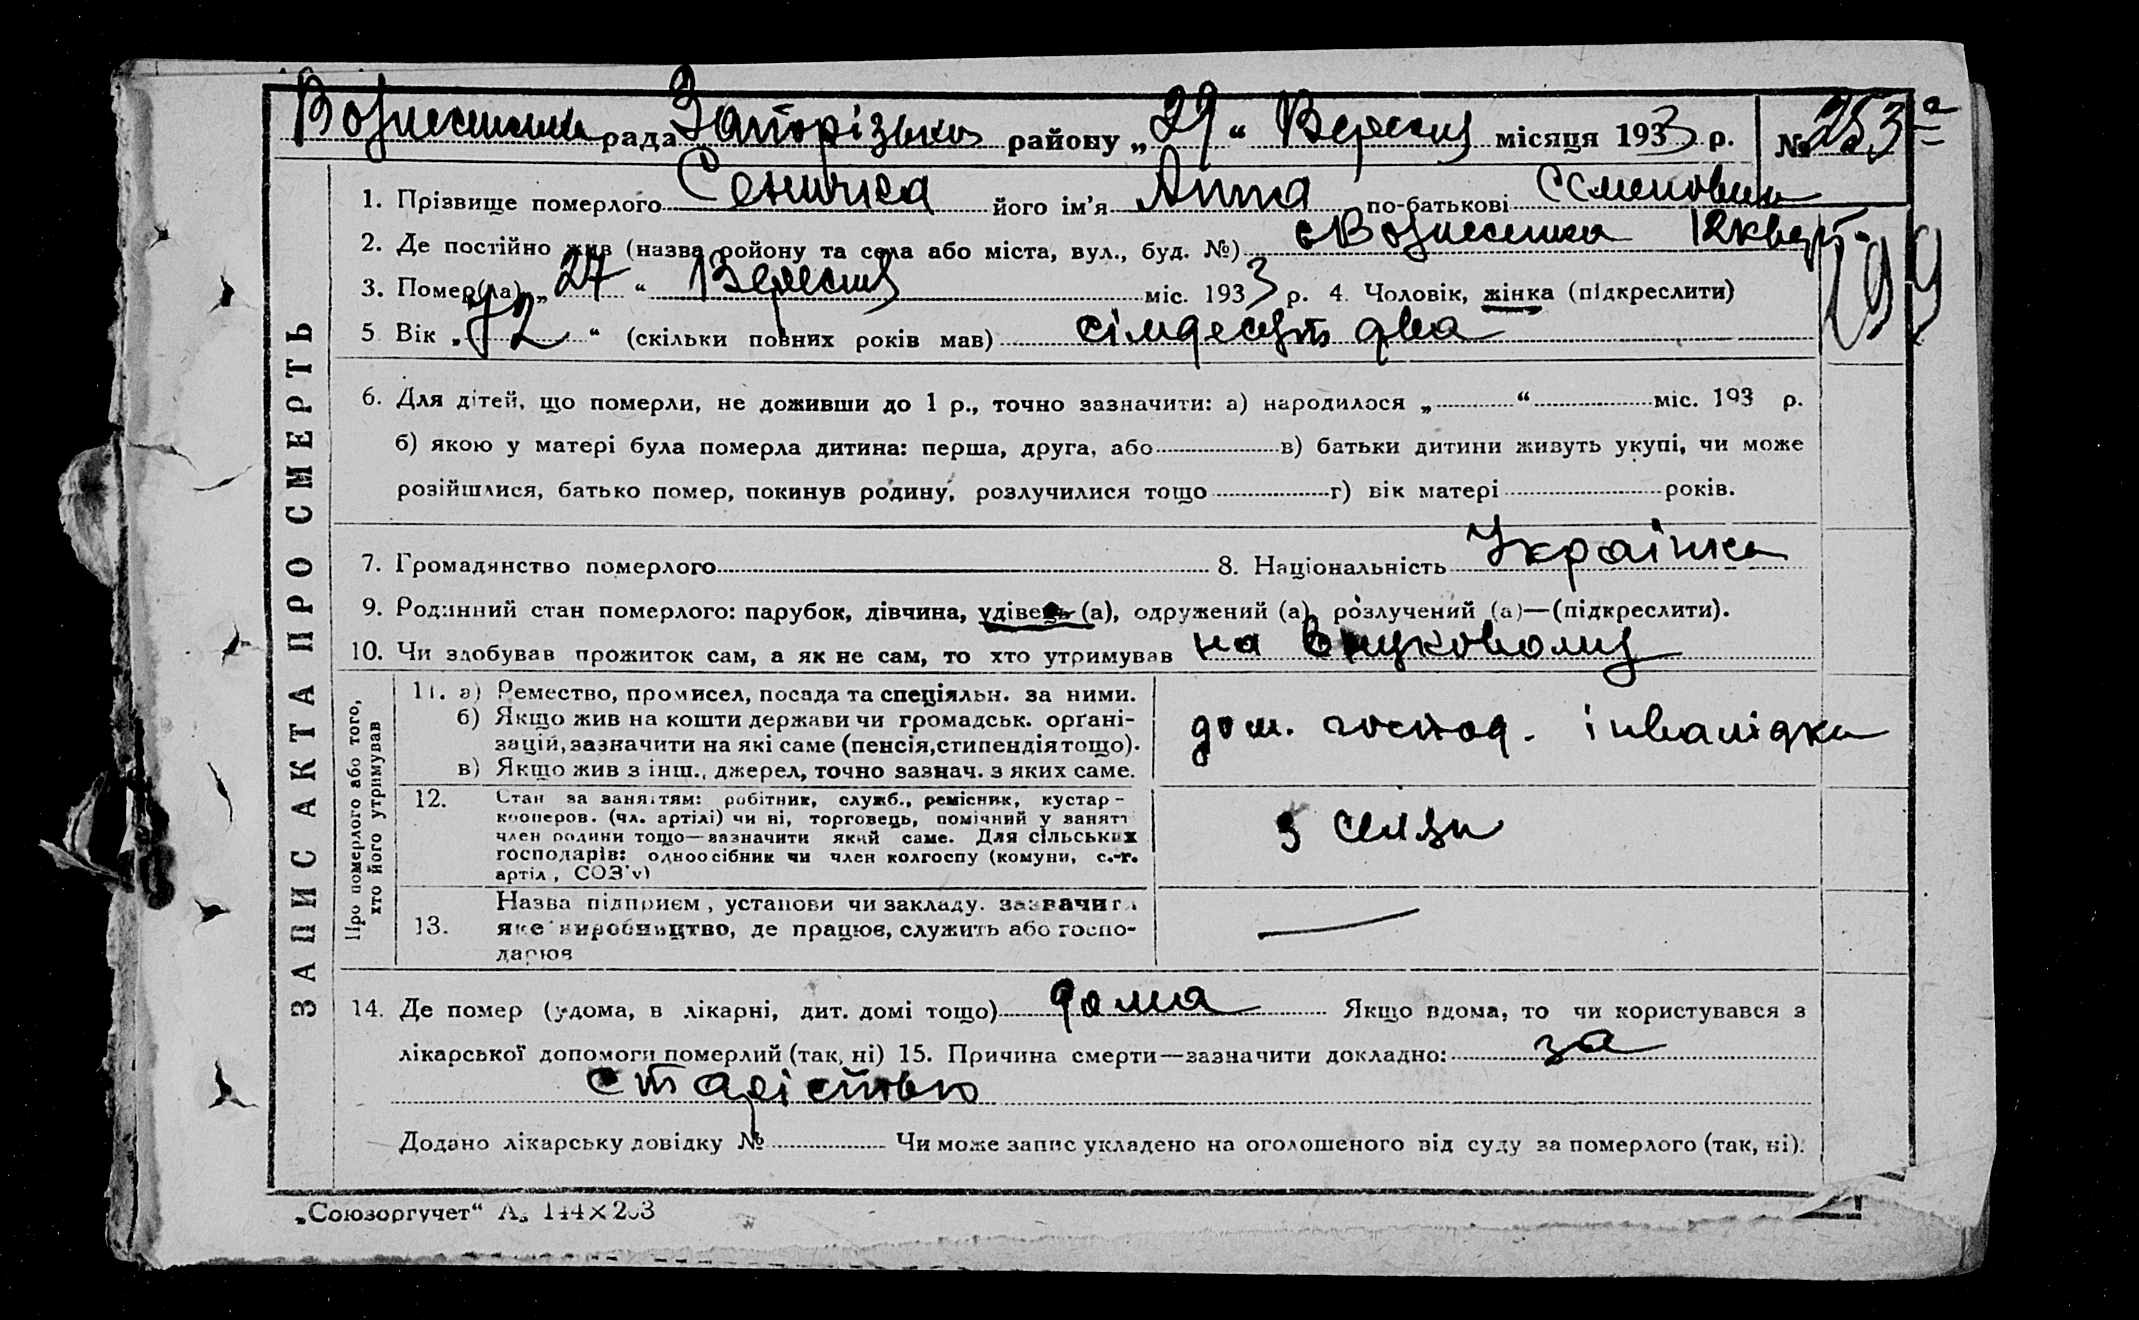 Вознесенська рада Запорізького району „29“ Вересня місяця 1933 р. № 253а
ЗАПИС АКТА ПРО СМЕРТЬ
1. Прізвище померлого його ім’я Анна по-батькові Семеновна
2. Де постійно жив (назва ройону та села або міста, вул., буд. №) с Вознесенка 12 кварт.
199
3. Помер(ла) „27“ Вересня міс. 1933 р. 4. Чоловік, жінка (підкреслити)
5 Вік „72“ (скільки повних років мав) сімдесят два
6. Для дітей, що померли, не доживши до 1 р., точно зазначити: а) народилося „ “ міс. 193 р.
б) якою у матері була померла дитина: перша, друга, або в) батьки дитини живуть укупі, чи може
розійшлися, батько помер, покинув родину, розлучилися тощо г) вік матері років.
7. Громадянство померлого 8. Національність Українка
9. Родинний стан померлого: парубок, дівчина, удівець (а), одружений (а), розлучений (а)—(підкреслити).
10. Чи здобував прожиток сам, а як не сам, то хто утримував на
Про померлого або того,
хто його утримував
11. а) Ремество, промисел, посада та спеціяльн. за ними.
б) Якщо жив на кошти держави чи громадськ. орґані-
зацій, зазначити на які саме (пенсія, стипендія тощо).
в) Якщо жив з інш., джерел, точно зазнач. з яких саме.
дом. господ. інвалідка
12. Стан за заняттям: робітник, служб., ремісник, кустар-
кооперов. (чл. артілі) чи ні, торговець, помічний у занятт
член родини тощо—зазначити який саме. Для сільських
господарів: одноосібник чи член колгоспу (комуни, с.-г.
артіл, СОЗ’у)
з селян
13. Назва підприєм, установи чи закладу. зазначити
яке виробництво, де працює, служить або госпо-
дарює
14. Де помер (удома, в лікарні, дит. домі тощо) дома Якщо вдома, то чи користувався з
лікарської допомоги померлий (так, ні) 15. Причина смерти—зазначити докладно: за
старістью
Додано лікарську довідку № Чи може запис укладено на оголошеного від суду за померлого (так, ні).
„Союзоргучет“